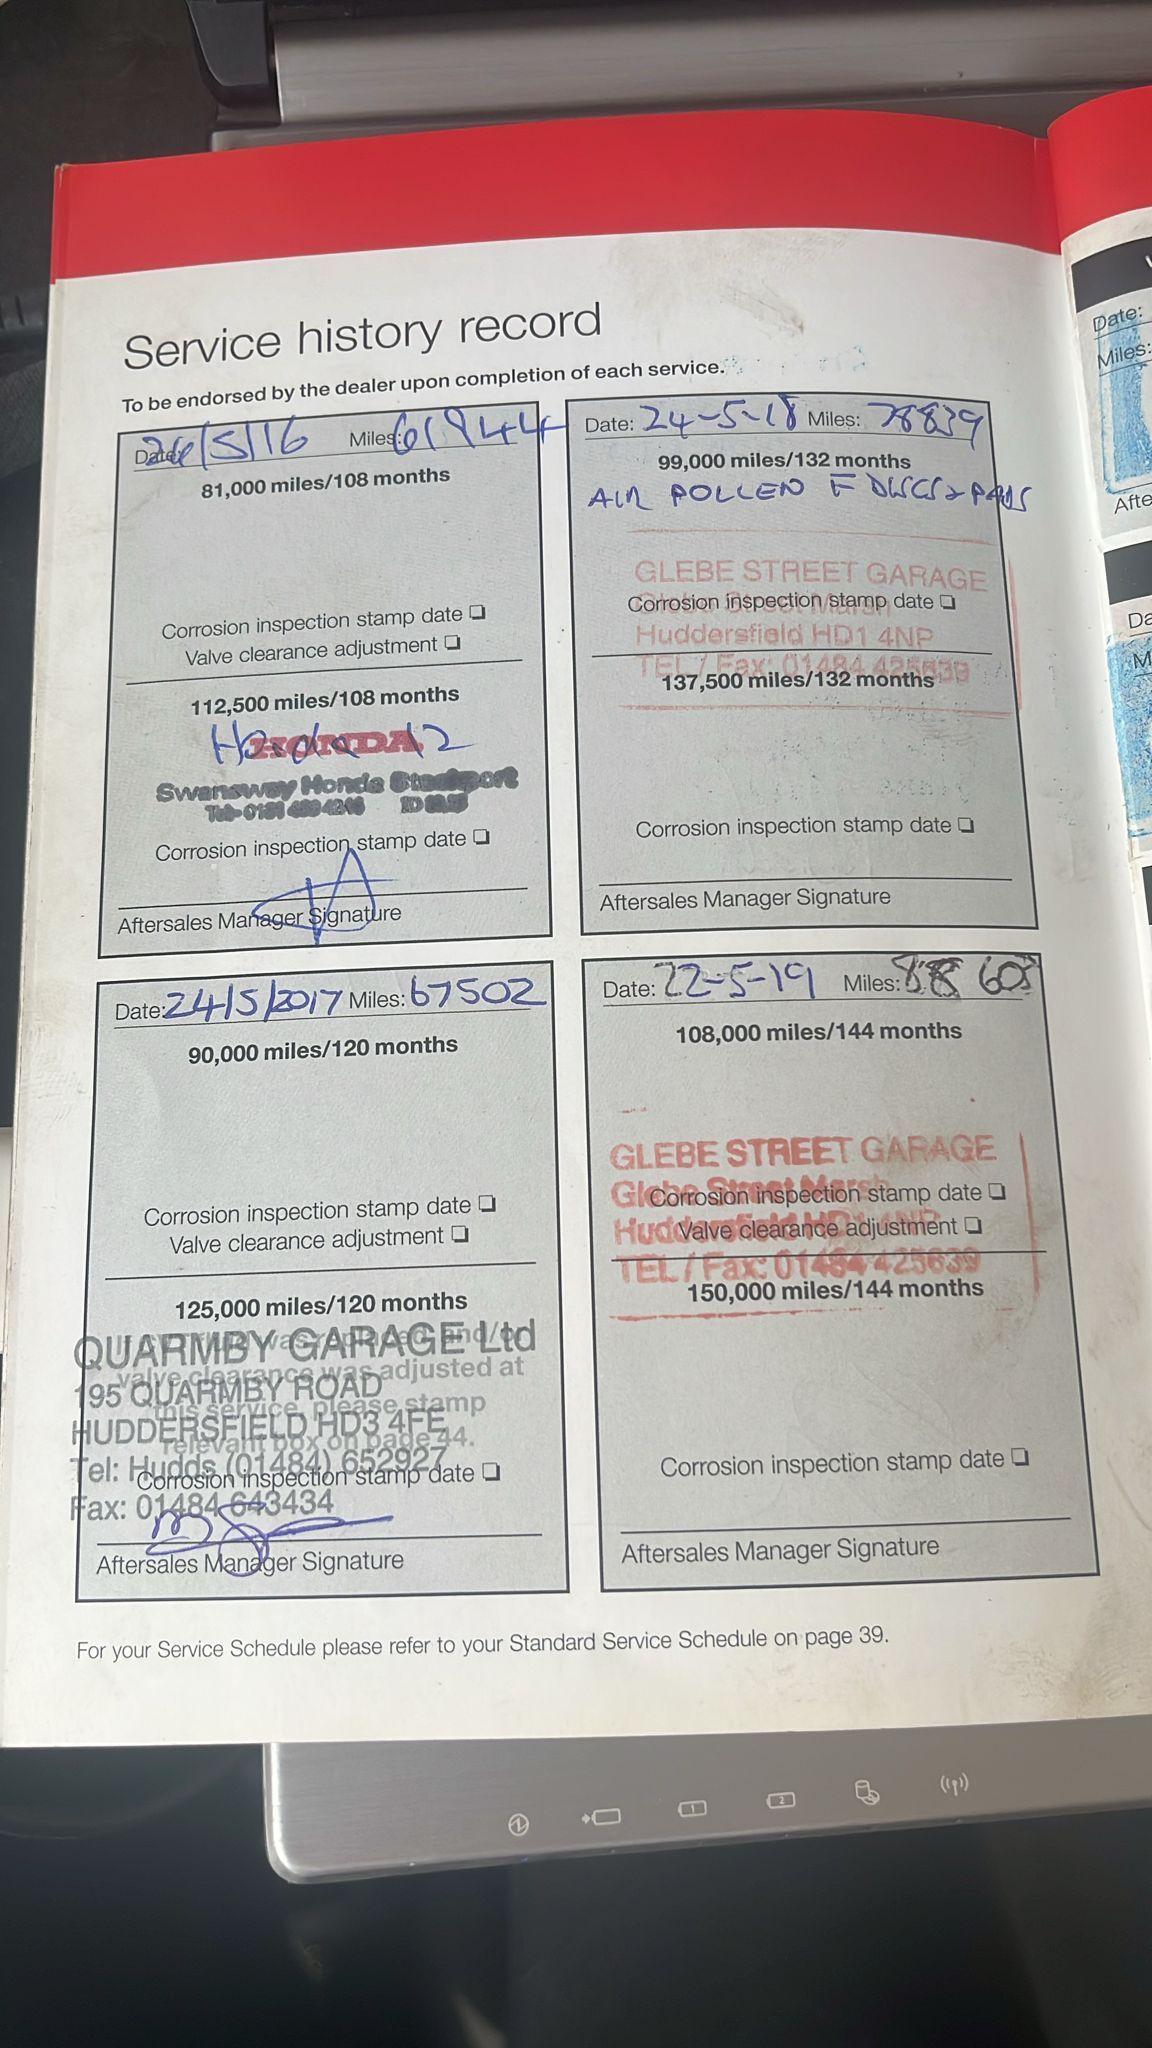 Service history record
To be endorsed by the dealer upon completion of each service.
Date: 26/5/16 Miles: 61944
81,000 miles/108 months
Corrosion inspection stamp date ❑
Valve clearance adjustment ❑
112,500 miles/108 months
HONDA
Honda 12
Swansway Honda Stockport
Corrosion inspection stamp date ❑
Aftersales Manager Signature
Date: 24-5-18 Miles: 78839
99,000 miles/132 months
AIR POLLEN F DISCS & PADS
GLEBE STREET GARAGE
Glebe Street Marsh
Corrosion inspection stamp date ❑
Huddersfield HD1 4NP
TEL / Fax: 01484 425639
137,500 miles/132 months
Corrosion inspection stamp date ❑
Aftersales Manager Signature
Date: 24/5/2017 Miles: 67502
90,000 miles/120 months
Corrosion inspection stamp date ❑
Valve clearance adjustment ❑
125,000 miles/120 months
QUARMBY GARAGE Ltd
195 QUARMBY ROAD
HUDDERSFIELD HD3 4FE
Tel: Hudds (01484) 652927
Fax: 01484 643434
and/or
valve clearance was adjusted at
this service, please stamp
relevant box on page 44.
Corrosion inspection stamp date ❑
Aftersales Manager Signature
Date: 22-5-19 Miles: 88 608
108,000 miles/144 months
GLEBE STREET GARAGE
Glebe Street Marsh
Corrosion inspection stamp date ❑
Huddersfield HD1 4NP
Valve clearance adjustment ❑
TEL / Fax: 01484 425639
150,000 miles/144 months
Corrosion inspection stamp date ❑
Aftersales Manager Signature
For your Service Schedule please refer to your Standard Service Schedule on page 39.
Date:
Miles:
1
2